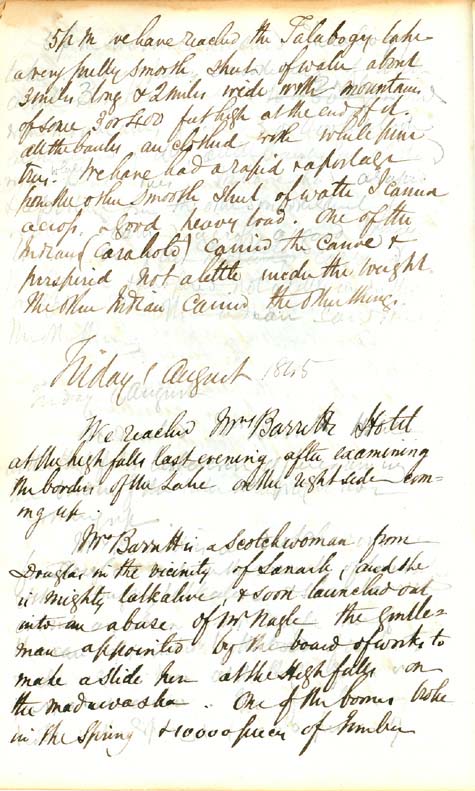 5 p m we have reached the Talabogy lake
a very pretty smooth sheet of water about
3 miles long & 2 miles wide with mountains
of some 3 or 400 feet high at the end of it
all the banks are clothed with white pine
trees. We have had a rapid & a portage
from the other smooth sheet of water I carried
across a good heavy load. One of the
Indians (Carahoto) carried the canoe &
perspired not a little under the weight
the other Indian carried the other things.
Friday 1 August 1845
We reached Mrs Barretts Hotel
at the high falls last evening after examining
the borders of the Lake on the right side com-
ing up.
Mrs Barrett is a Scotchwoman from
Douglas in the vicinity of Lanark, and she
is mighty talkative & soon launched out
into an abuse of Mr Nagle the gentle-
man appointed by the board of works to
make a slide here at the High falls on
the madawaska. One of the booms broke
in the Spring & 10000 pieces of timber